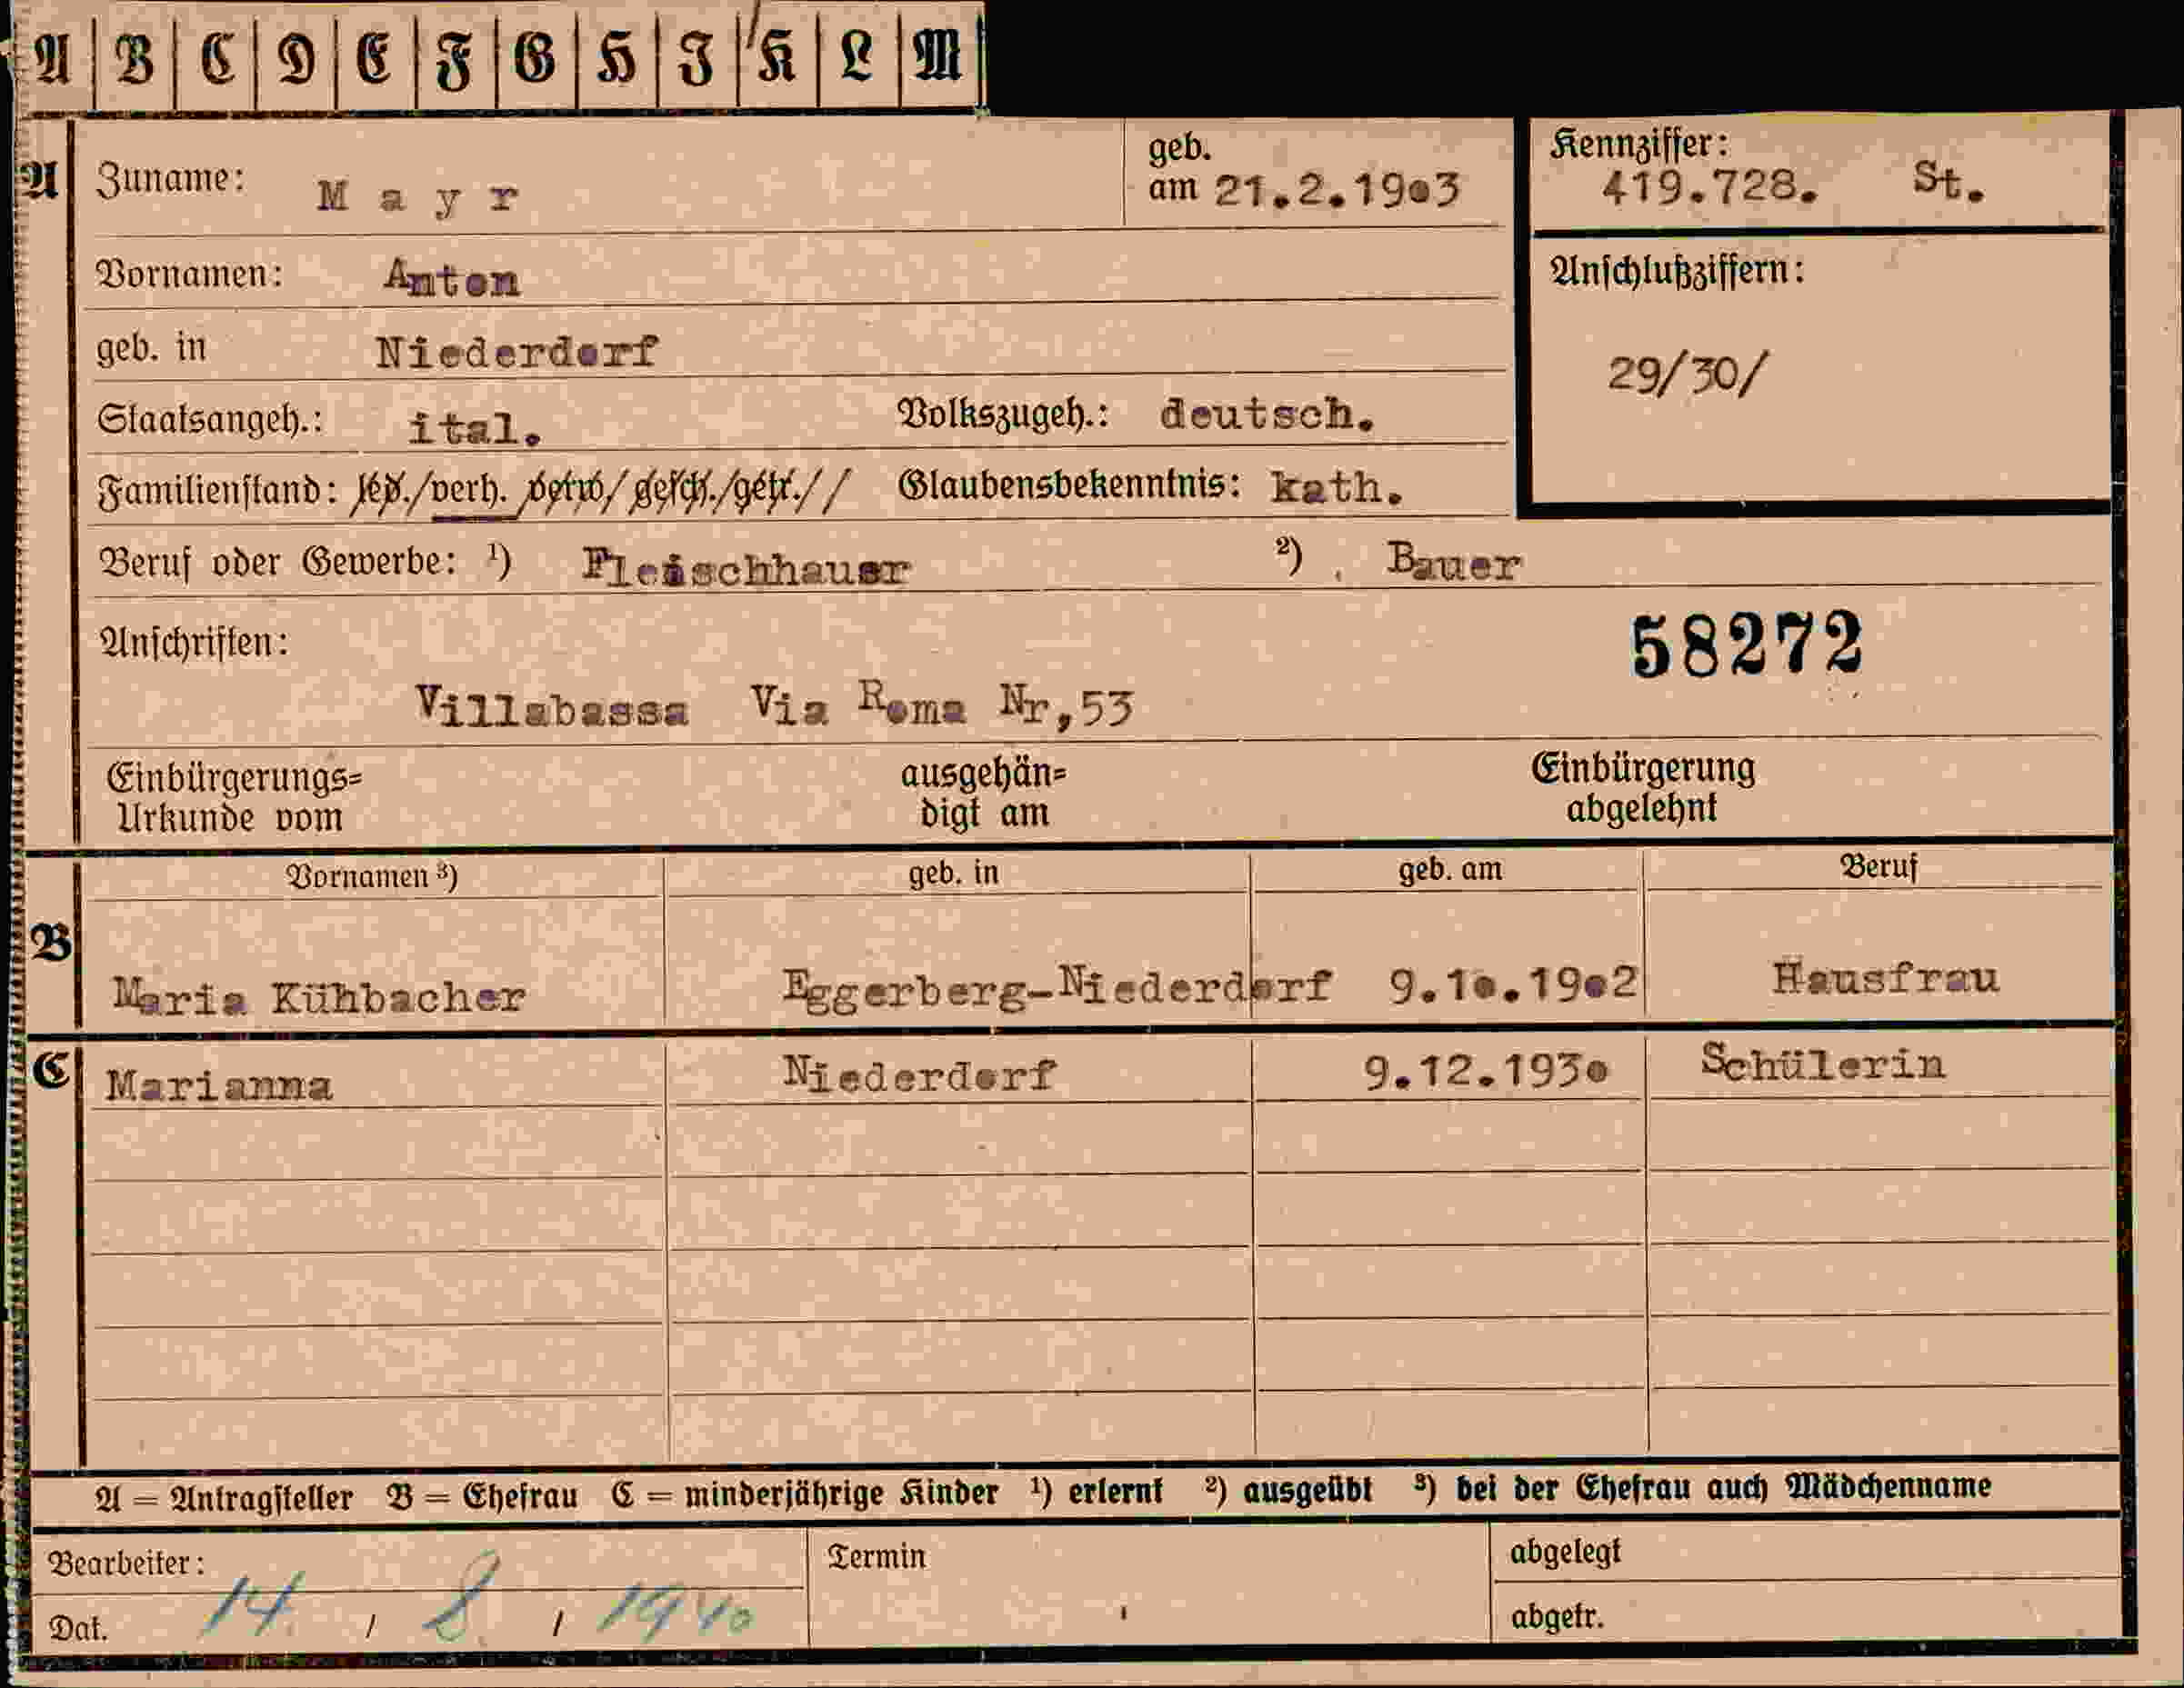 A B C D E F G H J K L M
A Zuname: Mayr geb. am 21.2.1903 Kennziffer: 419.728. St.
Vornamen: Anton Anschlußziffern:
geb. in Niederdorf 29/30/
Staatsangeh.: ital. Volkszugeh.: deutsch.
Familienstand: led./verh. verw/gesch./getr.// Glaubensbekenntnis: kath.
Beruf oder Gewerbe: ¹) Fleischhauer ²) Bauer
Anschriften: 58272
Villabassa Via Roma Nr,53
Einbürgerungs= ausgehän= Einbürgerung
Urkunde vom digt am abgelehnt
Vornamen ³) geb. in geb. am Beruf
B Maria Kühbacher Eggerberg-Niederdorf 9.10.1902 Hausfrau
C Marianna Niederdorf 9.12.1930 Schülerin
A = Antragsteller B = Ehefrau C = minderjährige Kinder ¹) erlernt ²) ausgeübt ³) bei der Ehefrau auch Mädchenname
Bearbeiter: Termin abgelegt
Dat. 14 / 8 / 1940 abgetr.